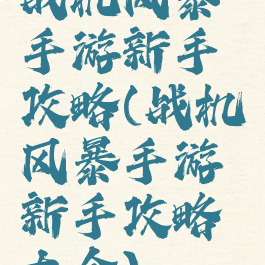 战机风暴
手游新手
攻略(战机
风暴手游
新手攻略
大全)